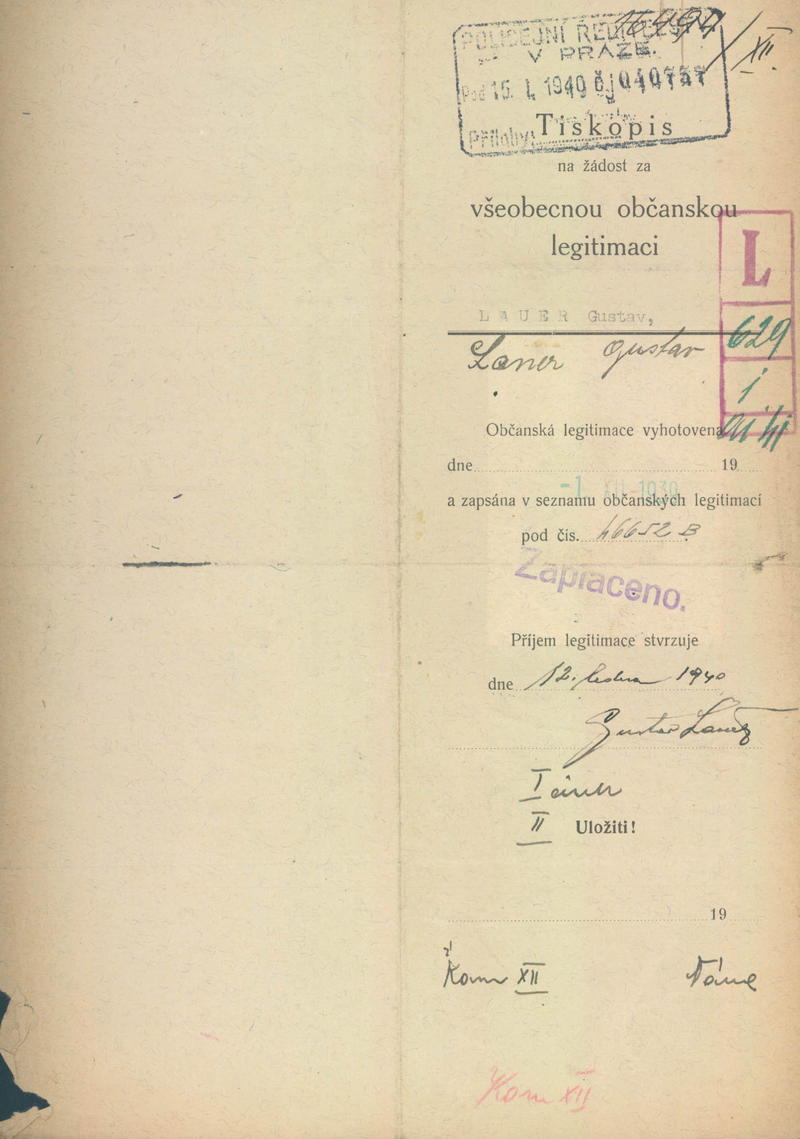 POLICEJNÍ ŘEDITELST
V PRAZE.
15. I. 1940 čj 040757
Přílohy
XII
Tiskopis
na žádost za
všeobecnou občanskou
legitimaci
L
LAUER Gustav,
629
Lauer Gustav
1
Občanská legitimace vyhotovena
dne 19
-1. XII. 1939
a zapsána v seznamu občanských legitimací
pod čís. 46652 B
Zaplaceno.
Příjem legitimace stvrzuje
dne 12. ledna 1940
Gustav Lauer
I
II Uložiti!
19
Kom XII
Kom XII